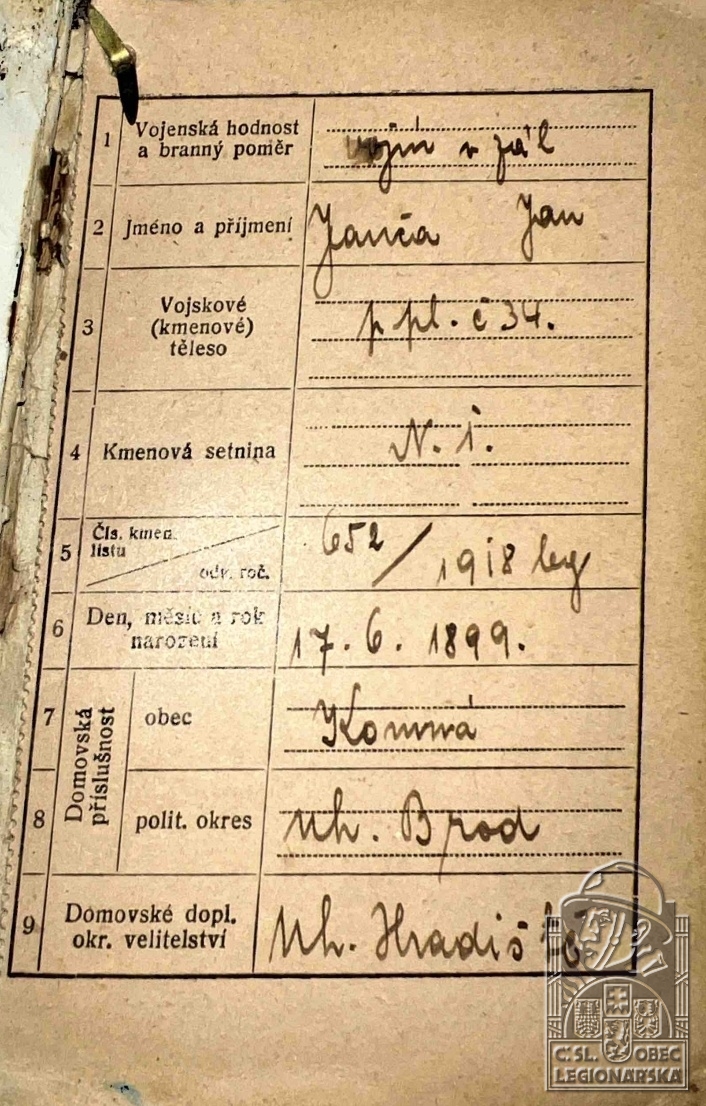 1 Vojenská hodnost
a branný poměr
vojín v zál
2 Jméno a příjmení
Janča Jan
3 Vojskové
(kmenové)
těleso
p pl. č 34.
4 Kmenová setnina
N. 1.
5 Čís. kmen.
listu
odv. roč.
652/1918 leg
6 Den, měsíc a rok
narození
17. 6. 1899.
Domovská
příslušnost
7 obec
Komná
8 polit. okres
Uh. Brod
9 Domovské dopl.
okr. velitelství
Uh. Hradiště
Č. SL. OBEC
LEGIONÁŘSKÁ